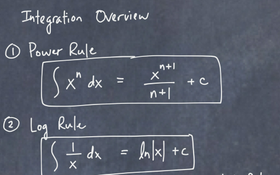 Integration Overview
① Power Rule
∫ xⁿ dx = xⁿ⁺¹/n+1 + c
② Log Rule
∫ 1/x dx = ln|x| + c